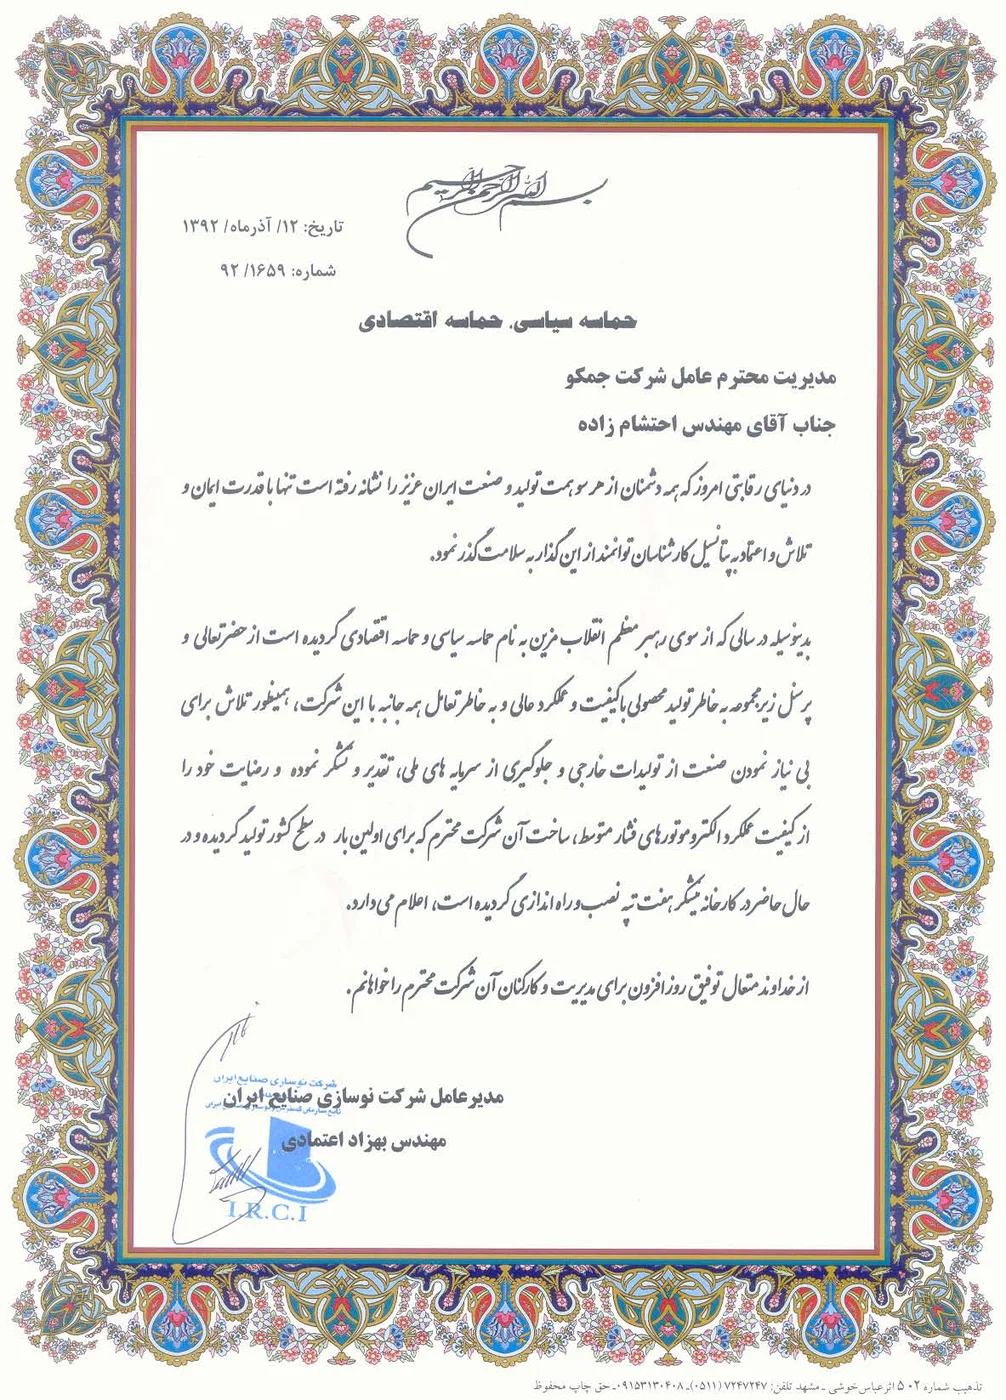 بسم الله الرحمن الرحیم
تاریخ: ۱۲/ آذرماه/ ۱۳۹۲
شماره: ۱۶۵۹/ ۹۲
حماسه سیاسی، حماسه اقتصادی
مدیریت محترم عامل شرکت جمکو
جناب آقای مهندس احتشام زاده
در دنیای رقابتی امروز که همه دشمنان از هر سو همت تولید و صنعت ایران عزیز را نشانه رفته است تنها با قدرت ایمان و
تلاش و اعتماد به پتانسیل کارشناسان توانمند از این گذار به سلامت گذر نمود.
بدینوسیله در سالی که از سوی رهبر معظم انقلاب مزین به نام حماسه سیاسی و حماسه اقتصادی گردیده است از حضرتعالی و
پرسنل زیرمجموعه به خاطر تولید محصولی با کیفیت و عملکرد عالی و به خاطر تعامل همه جانبه با این شرکت، همینطور تلاش برای
بی نیاز نمودن صنعت از تولیدات خارجی و جلوگیری از سرمایه های ملی، تقدیر و تشکر نموده و رضایت خود را
از کیفیت عملکرد الکتروموتورهای فشار متوسط، ساخت آن شرکت محترم که برای اولین بار در سطح کشور تولید گردیده و در
حال حاضر در کارخانه نیشکر هفت تپه نصب و راه اندازی گردیده است، اعلام می دارد.
از خداوند متعال توفیق روز افزون برای مدیریت و کارکنان آن شرکت محترم را خواهانم.
شرکت نوسازی صنایع ایران
مدیرعامل شرکت نوسازی صنایع ایران
مهندس بهزاد اعتمادی
I.R.C.I
تذهیب شماره ۵۰۲ اثر عباس خوشی - مشهد تلفن: ۷۲۴۷۲۴۷ (۰۵۱۱)ـ ۰۹۱۵۳۱۳۰۴۰۸ـ حق چاپ محفوظ